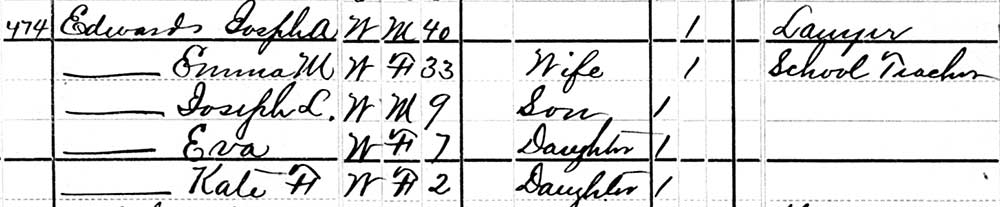 474 Edwards Joseph A W M 40 1 Lawyer
—— Emma M W F 33 Wife 1 School Teacher
—— Joseph L. W M 9 Son 1
—— Eva W F 7 Daughter 1
—— Kate F W F 2 Daughter 1